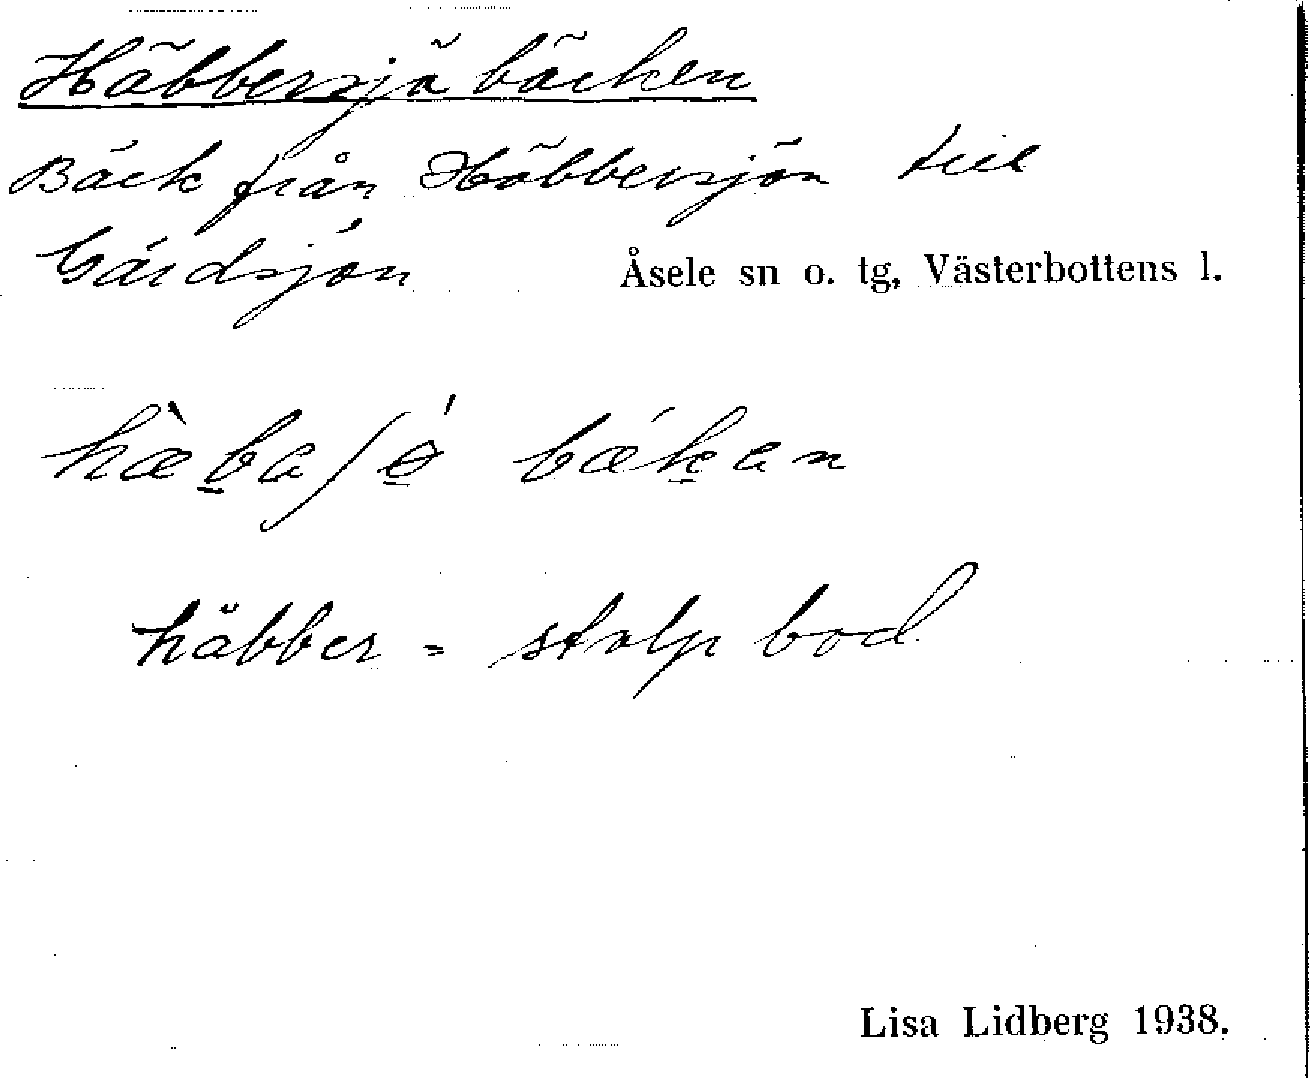 Häbbersjöbäcken
Bäck från Häbbersjön till
Gärdsjön
Åsele sn o. tg, Västerbottens l.
hæ̀baʃɵ́ bækan
häbber = stolpbod
Lisa Lidberg 1938.